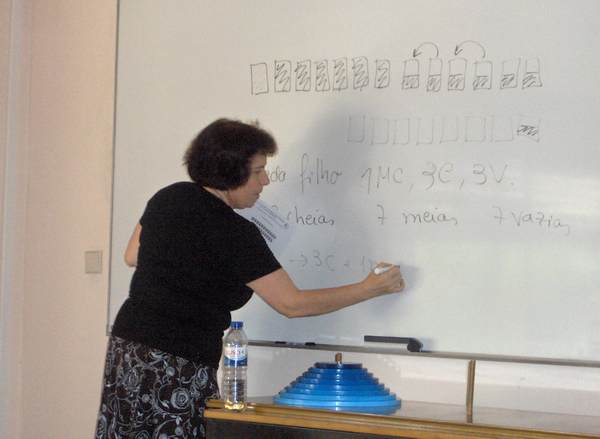 filho 1MC, 3C, 3V.
cheias 7 meias 7 vazias
→3C e 1